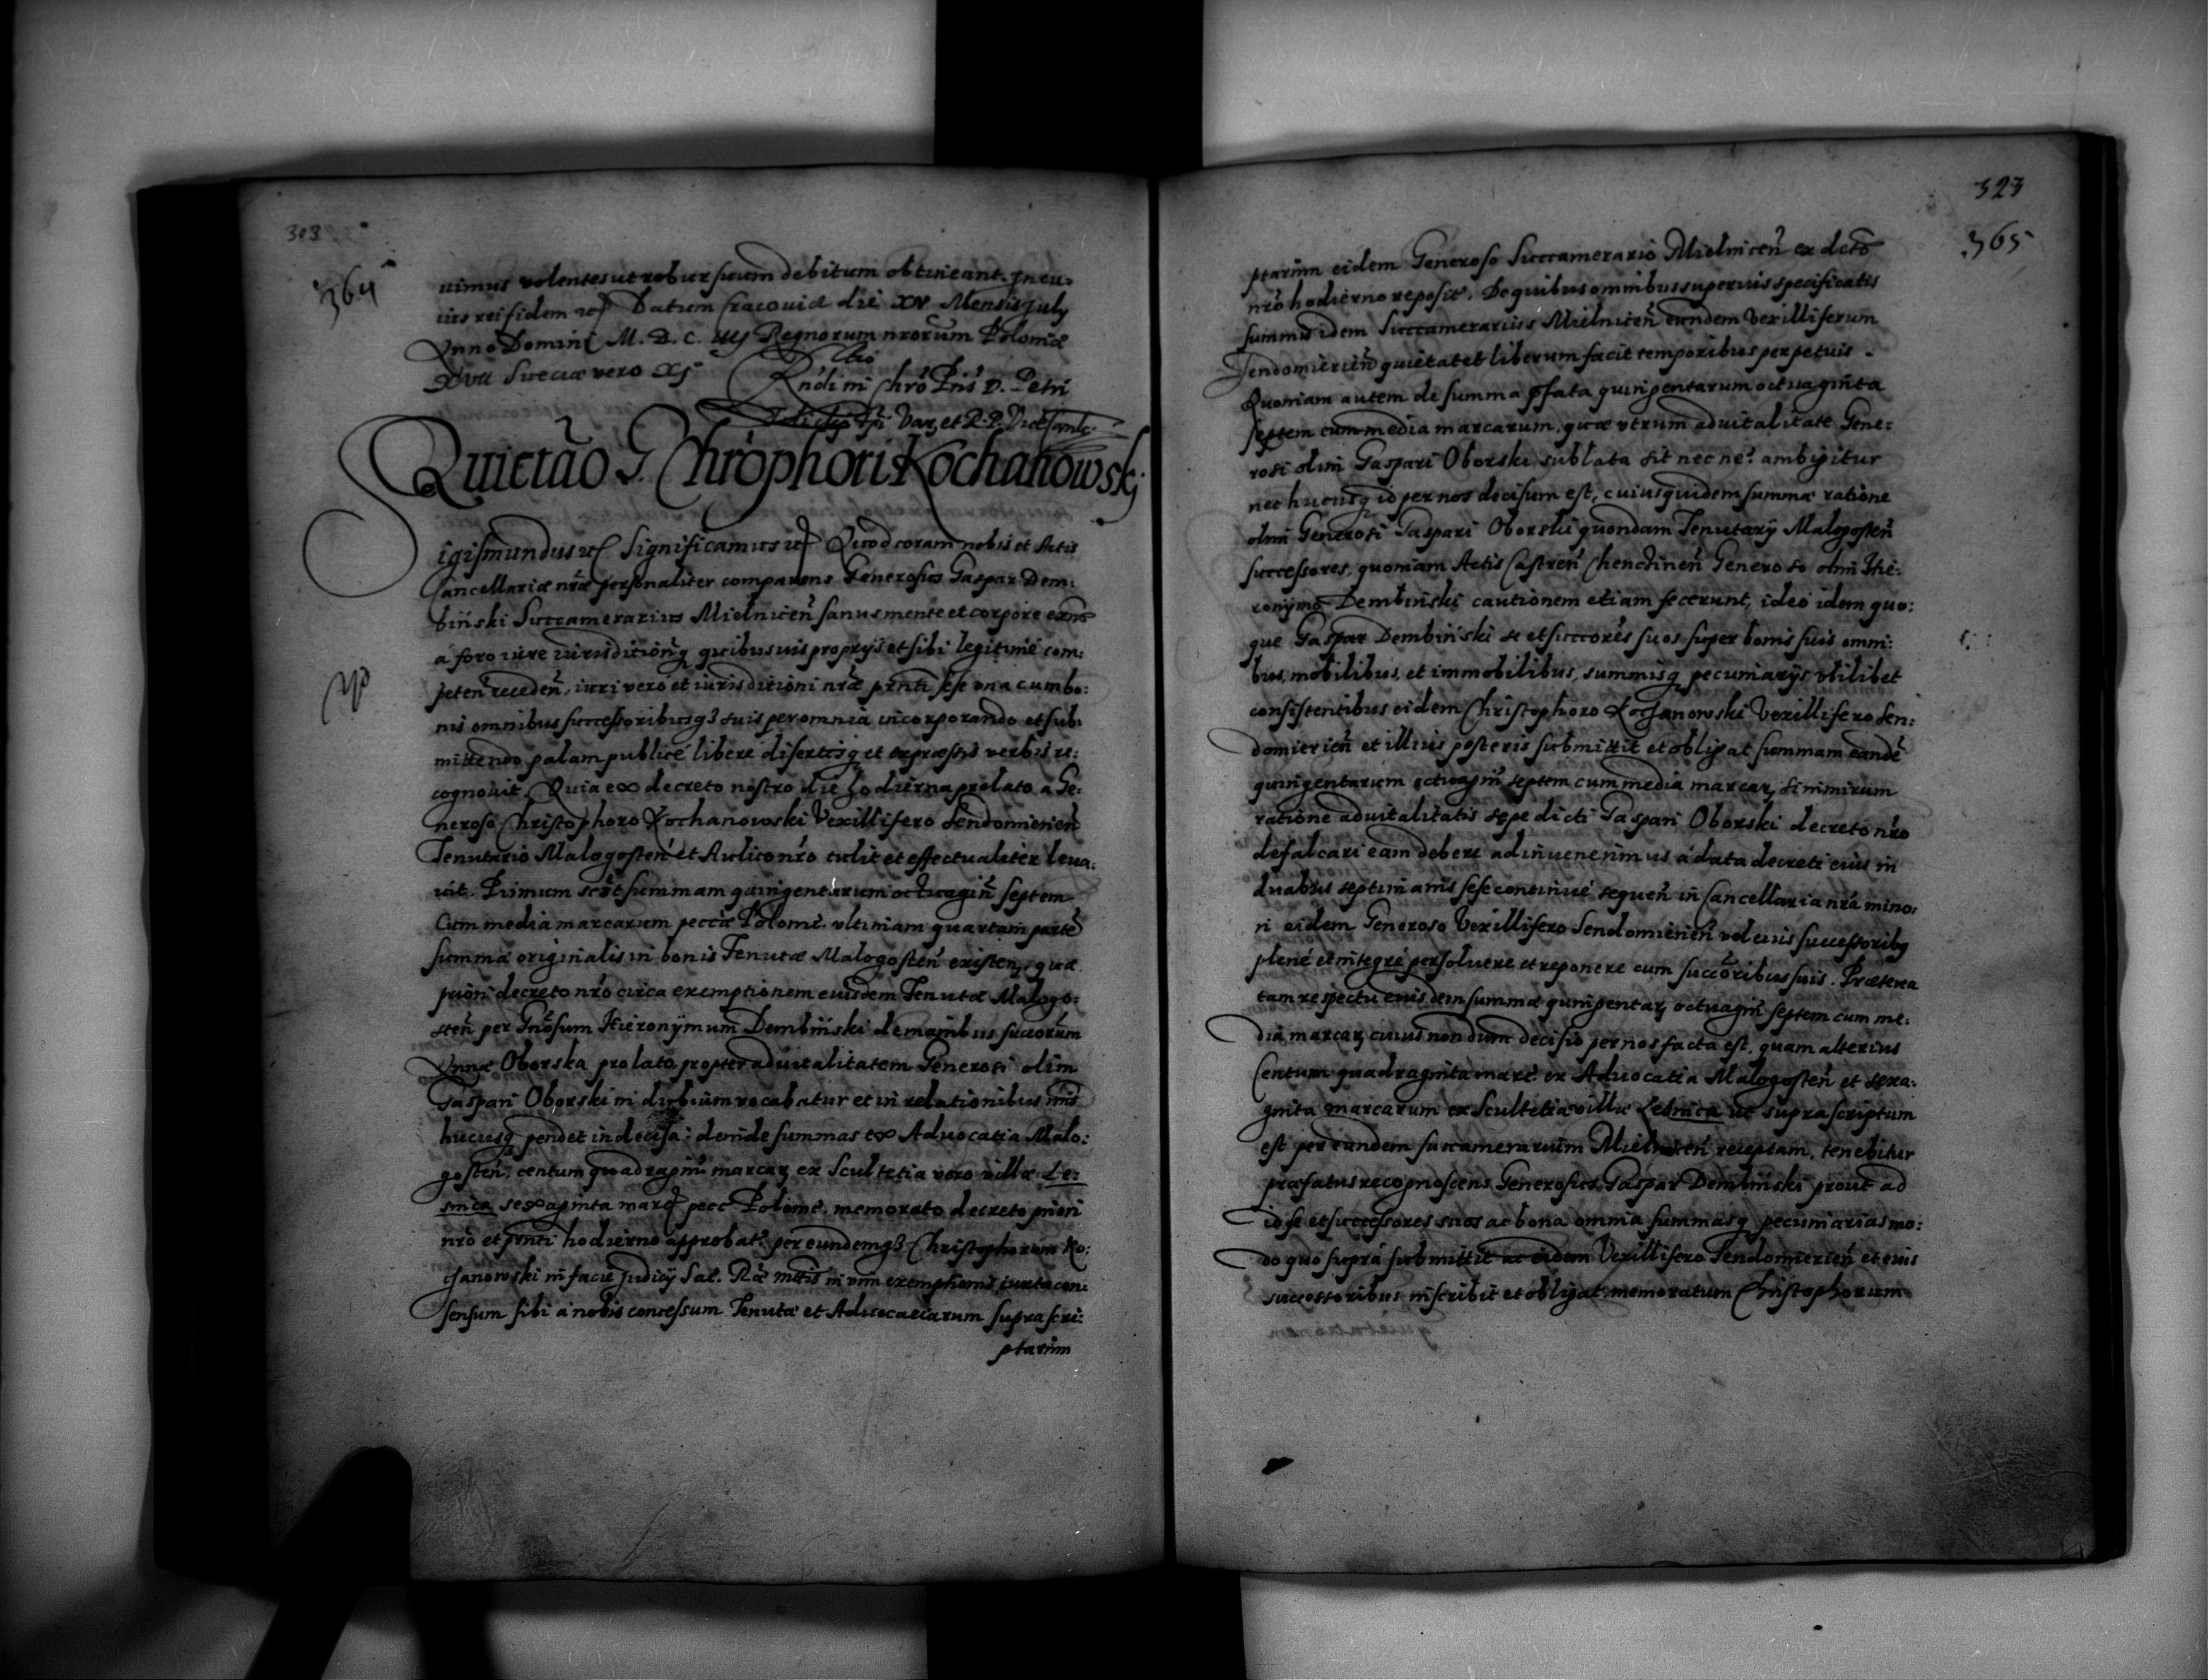 303
364
uimus volentes ut robur suum debitum obtineant. In eu-
ius rei fidem etc. Datum Cracoviæ die XV Mensis July
Anno Domini M. D. C. IIIJ Regnorum nrorum Poloniæ
XVII Sueciæ vero XJ
Rndi in Chro Pris D. Petri
Tylicky Epi Var, et R. P. Vicecanc.
Quietão G. Chrõphori Kochanowskj
igismundus etc. Significamus etc. Quod coram nobis et Actis
Cancellariæ nræ personaliter comparens Generosus Gaspar Dem:
biński Succamerarius Mielnicen̄ sanus mente et corpore exns
a foro iure iurisditionq quibusuis proprijs et sibi legitimè com:
peten̄ receden̄, iuri vero et iurisditioni nræ pnti sese una cum bo:
nis omnibus successoribusqз suis per omnia incorporando et sub:
mittendo palam publicè liberè disertisq et expressis verbis re:
cognouit. Quia ex decreto nostro die hodierna prolato a Ge:
neroso Christophoro Kochanowski Vexillifero Sendomirien̄
Tenutario Malogosten̄ et Aulico nro tulit et effectualiter leua:
uit. Primum scet summam quingentarum octuagin̄ septem
cum media marcarum peccæ Polonić. vltimam quartam partē
summæ originalis in bonis Tenutæ Malogosten̄ existen, quæ
priori decreto nro circa exemptionem eiusdem Tenutæ Malogo:
sten̄ per Gnosum Hieronÿmum Dembiński de manibus succorum
Annæ Oborska prolato, propter aduitalitatem Generosi olim
Gaspari Oborski in dubium vocabatur et in relationibus nris
hucusq pendet indecisa: deinde summas ex Aduocatia Malo:
gosten̄, centum quadragin̄ marcar, ex Scultetia vero villæ Le:
snica sexaginta marc pecc Polonić. memorato decreto priori
nro et pnti hodierno approbat, per eundemqз Christophorum Ko:
chanowski in facie Judicÿ Sac. Ræ Mttis in vim exemptionis iuxta con:
sensum sibi a nobis concessum Tenutæ et Aduocatiarum suprascri:
ptarum
323
365
ptarum eidem Generoso Succamerario Mielnicen̄ ex dcto
nro hodierno reposit. De quibus omnibus superius specificatis
summis idem Succamerarius Mielnicen̄ eundem Vexilliferum
Sendomirien̄ quietat et liberum facit temporibus perpetuis.
Quoniam autem de summa pfata quingentarum octuaginta
septem cum media marcarum, quæ vtrum aduitalitate Gene:
rosi olim Gaspari Oborski sublata sit nec ne? ambigitur
nec hucusq id per nos decisum est, cuiusquidem summæ ratione
olim Generosi Gaspari Oborski quondam Tenutarÿ Malogosten̄
successores, quoniam Actis Castren̄ Chencinen̄ Generoso olim Hie:
ronÿmo Dembiński cautionem etiam fecerunt, ideo idem quo:
que Gaspar Dembiński se et succores suos super bonis suis omni:
bus, mobilibus, et immobilibus, summisq pecuniarÿs vbilibet
consistentibus eidem Christophoro Kochanowski Vexillifero Sen:
domierien̄ et illius posteris submittit et obligat summam eandē
quingentarum octuagin̄ septem cum media marcar, si nimirum
ratione aduitalitatis sepe dicti Gaspari Oborski decreto nro
defalcari eam debere adinuenerimus à data decreti eius in
duabus septimanis sese continué sequen̄ in Cancellaria nra mino:
ri eidem Generoso Vexillifero Sendomirien̄ vel eius successoribq
plené et integré persoluere et reponere cum succoribus suis. Præterea
tam respectu eiusdem summæ quingentar, octuagin̄ septem cum me:
dia marcar, cuius nondum decisio per nos facta est, quam alterius
Centum quadraginta marc. ex Aduocatia Malogosten̄ et sexa:
ginta marcarum ex Scultetia villæ Lesnica ut suprascriptum
est per eundem succamerarium Mielnicen̄ receptam, tenebitur
præfatus recognoscens Generosus Gaspar Dembiński prout ad
id se et successores suos ac bona omnia summasq pecuniarias mo:
do quo suprà submittit ac eidem Vexillifero Sendomierien̄ et eius
successoribus inscribit et obligat memoratum Christophorum